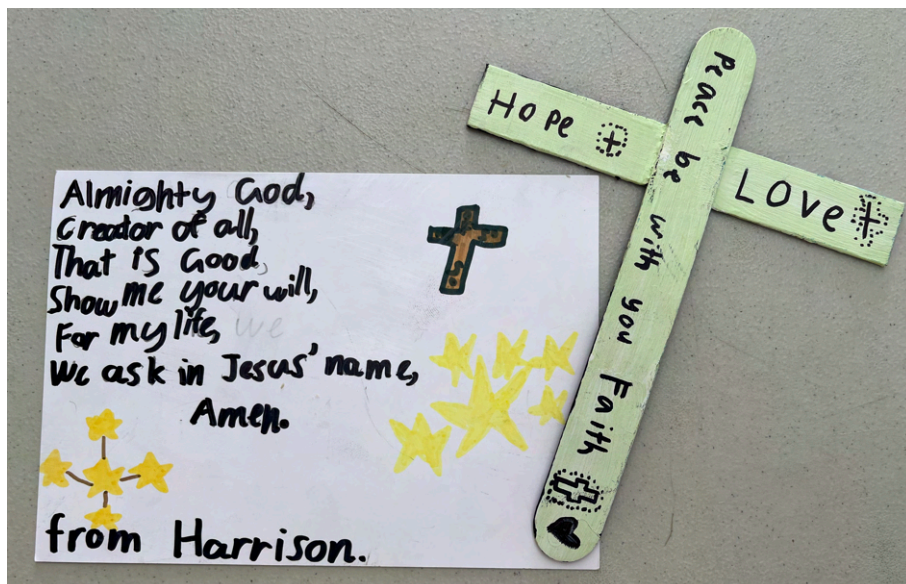 Almighty God,
Creator of all,
That is Good,
Show me your will,
For my life, we
We ask in Jesus' name,
Amen.
from Harrison.
Hope
Love
Peace be with you Faith